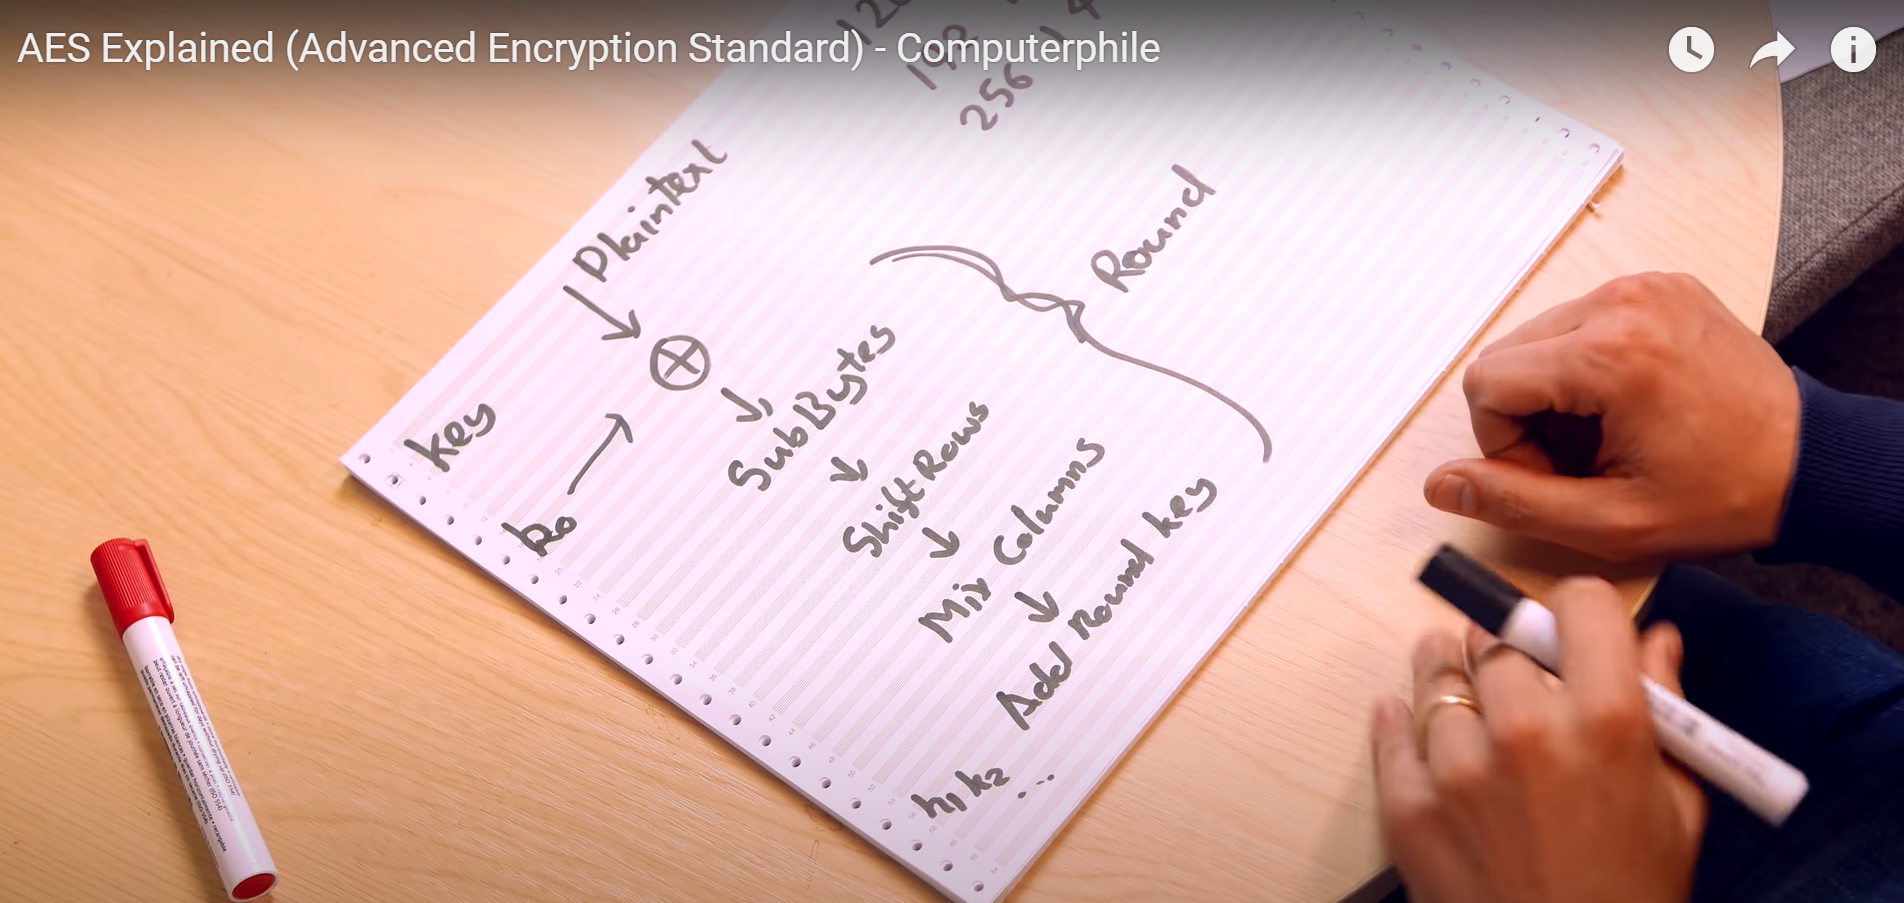 AES Explained (Advanced Encryption Standard) - Computerphile
128
192
256 14
Plaintext
key
k0
SubBytes
Shift Rows
Mix Columns
Add round key
k1 k2 ...
Round